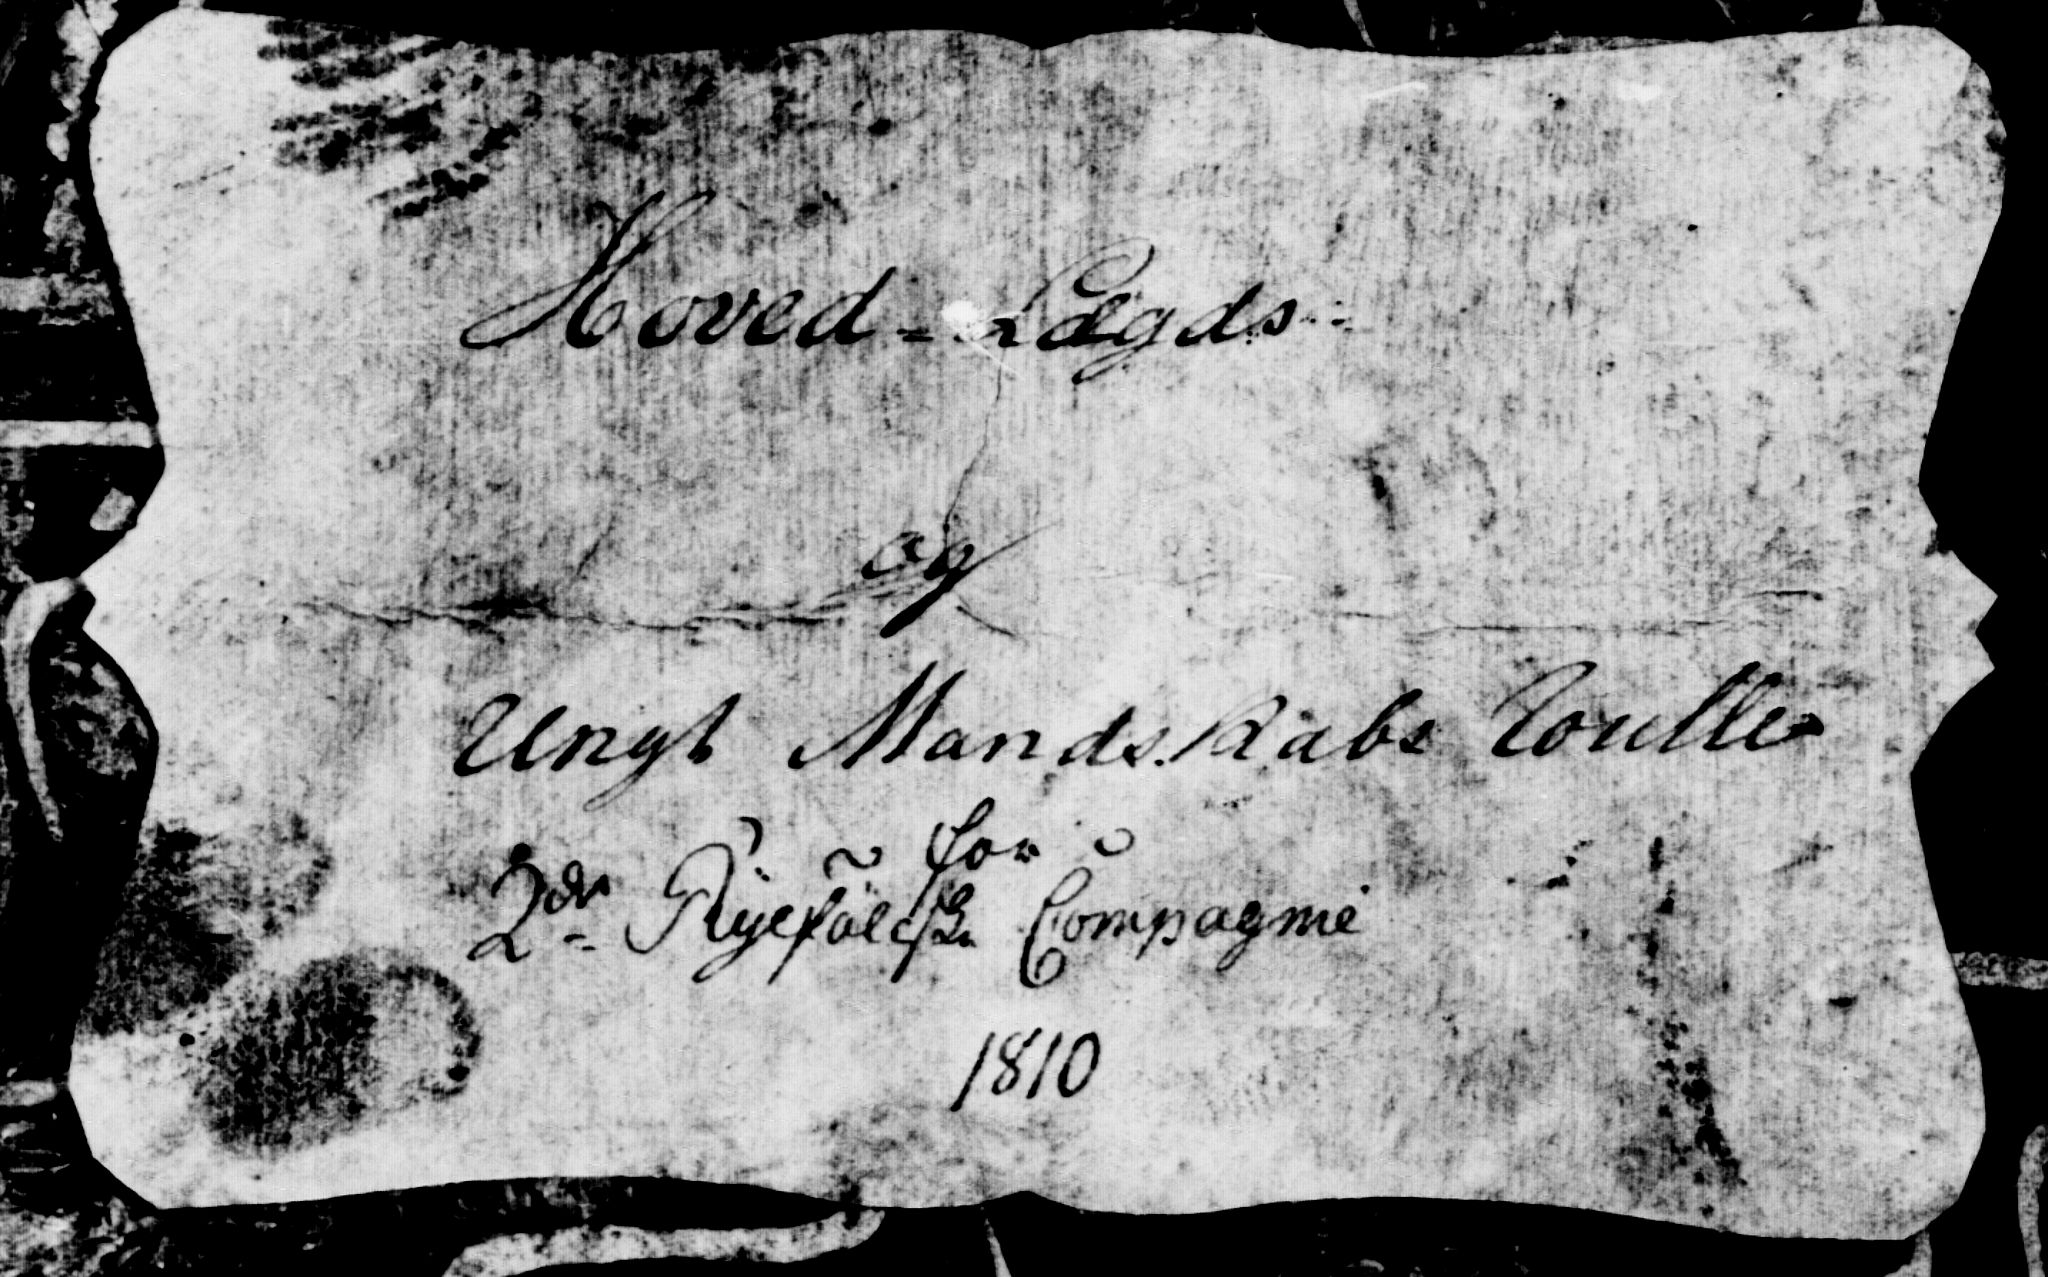 Hoved-Lægds-
og
Ungt Mandskabs Roulle
for
2der Ryefölcske Compagnie
1810